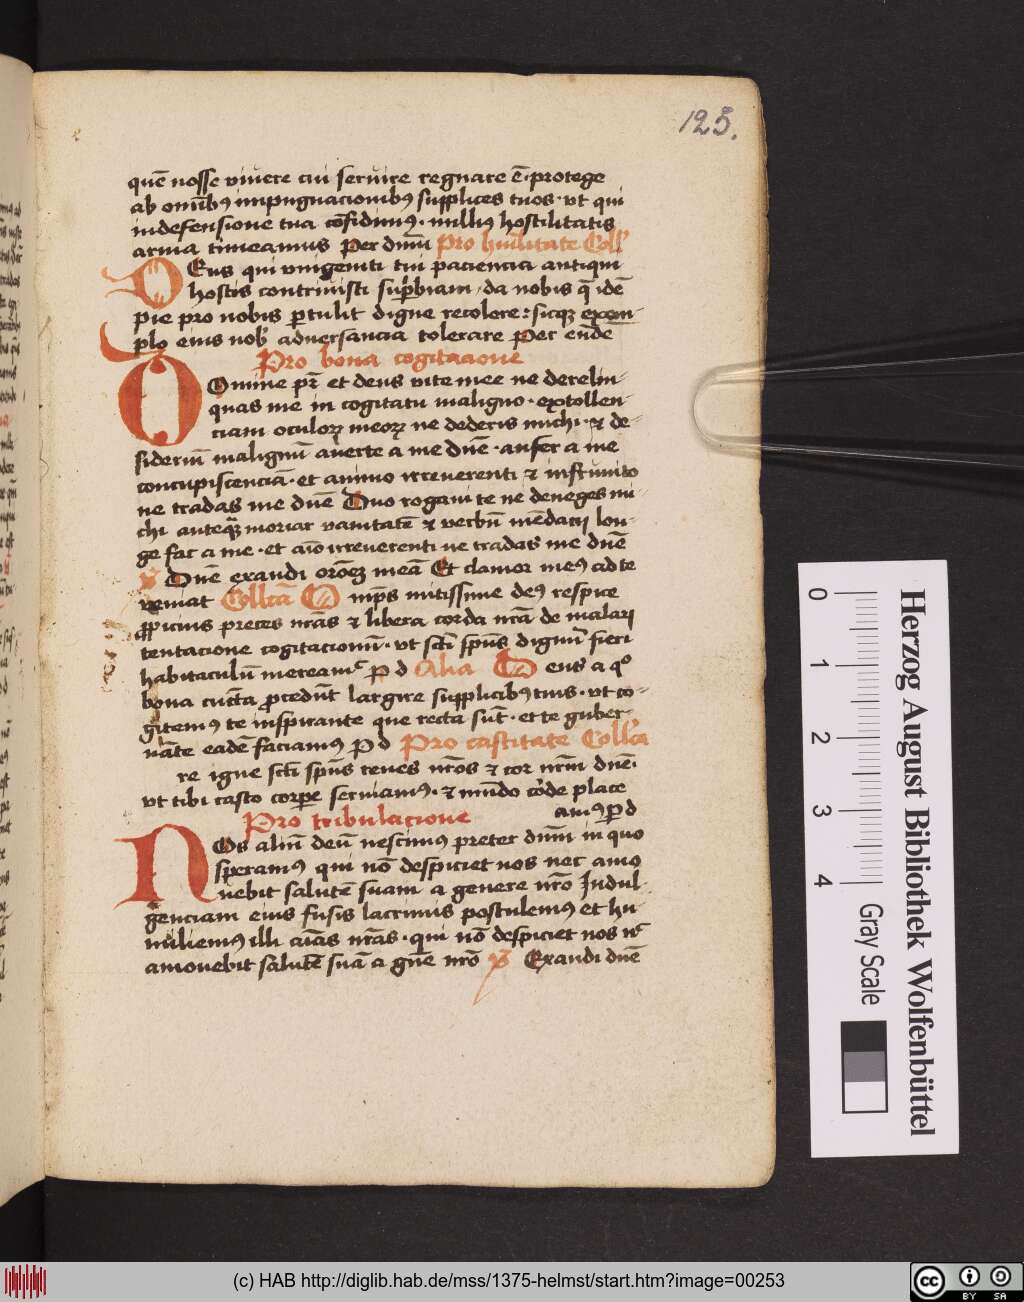 125.
quē nosse viuere cui seruire regnare ē · protege
ab omībꝰ inpugnacionibꝰ supplices tuos · vt qui
in defensione tua cōfidimꝰ · nulliꝰ hostilitatis
arma timeamus Per dnm̄ Pro hūilitate Coll'
DEus qui vnigeniti tui paciencia antiqui
hostis contriuisti suꝑbiam · da nobis q̄ idē
pie pro nobis ꝑtulit digne recolere : sicqꝫ exem-
plo eius nob' aduersancia tolerare Per eūdē
Pro bona cogitacione
DOmine pr̄ et deus vite mee ne derelin-
quas me in cogitatu maligno · extollen-
ciam oculoꝝ meoꝝ ne dederis michi · ⁊ de-
sideriū malignū auerte a me dnē · aufer a me
concupiscenciā · et animo irreuerenti ⁊ infrunito
ne tradas me dnē Duo rogaui te ne deneges mi-
chi anteqꝫ moriar vanitatē ⁊ verbū mēdacij lon-
ge fac a me · et aīo irreuerenti ne tradas me dnē
℣ Dnē exaudi orōeꝫ meā Et clamor meꝰ ad te
veniat Collcā Omps mitissime deꝰ respice
ꝓpicius preces nrās ⁊ libera corda nrā de malarꝫ
tentacione cogitacionū · vt scti spūs dignū fieri
habitaculū mereamͬ P d Alia Deus a qͦ
bona cūcta ꝓcedūt largire supplicibꝰ tuis · vt co-
gitemꝰ te inspirante que recta sūt · et te guber-
nāte eadē faciamꝰ P d Pro castitate Collcā
re igne scti spūs renes nrōs ⁊ cor nrm̄ dnē ·
vt tibi casto corꝑe seruiamꝰ · ⁊ mūdo corde place
amꝰ P d
Pro tribulacione
NOs aliū deū nescimꝰ preter dnm̄ in quo
speramꝰ qui nō despiciet nos nec amo
uebit salutē suam a genere nrō Indul-
genciam eius fusis lacrimis postulemꝰ et hu-
miliemꝰ illi aīas nrās · qui nō despiciet nos nͨ
amouebit salutē suā a gn̄e nrō ℣ Exaudi dnē
0
1
2
3
4
Gray Scale
Herzog August Bibliothek Wolfenbüttel
(c) HAB http://diglib.hab.de/mss/1375-helmst/start.htm?image=00253
cc
BY SA